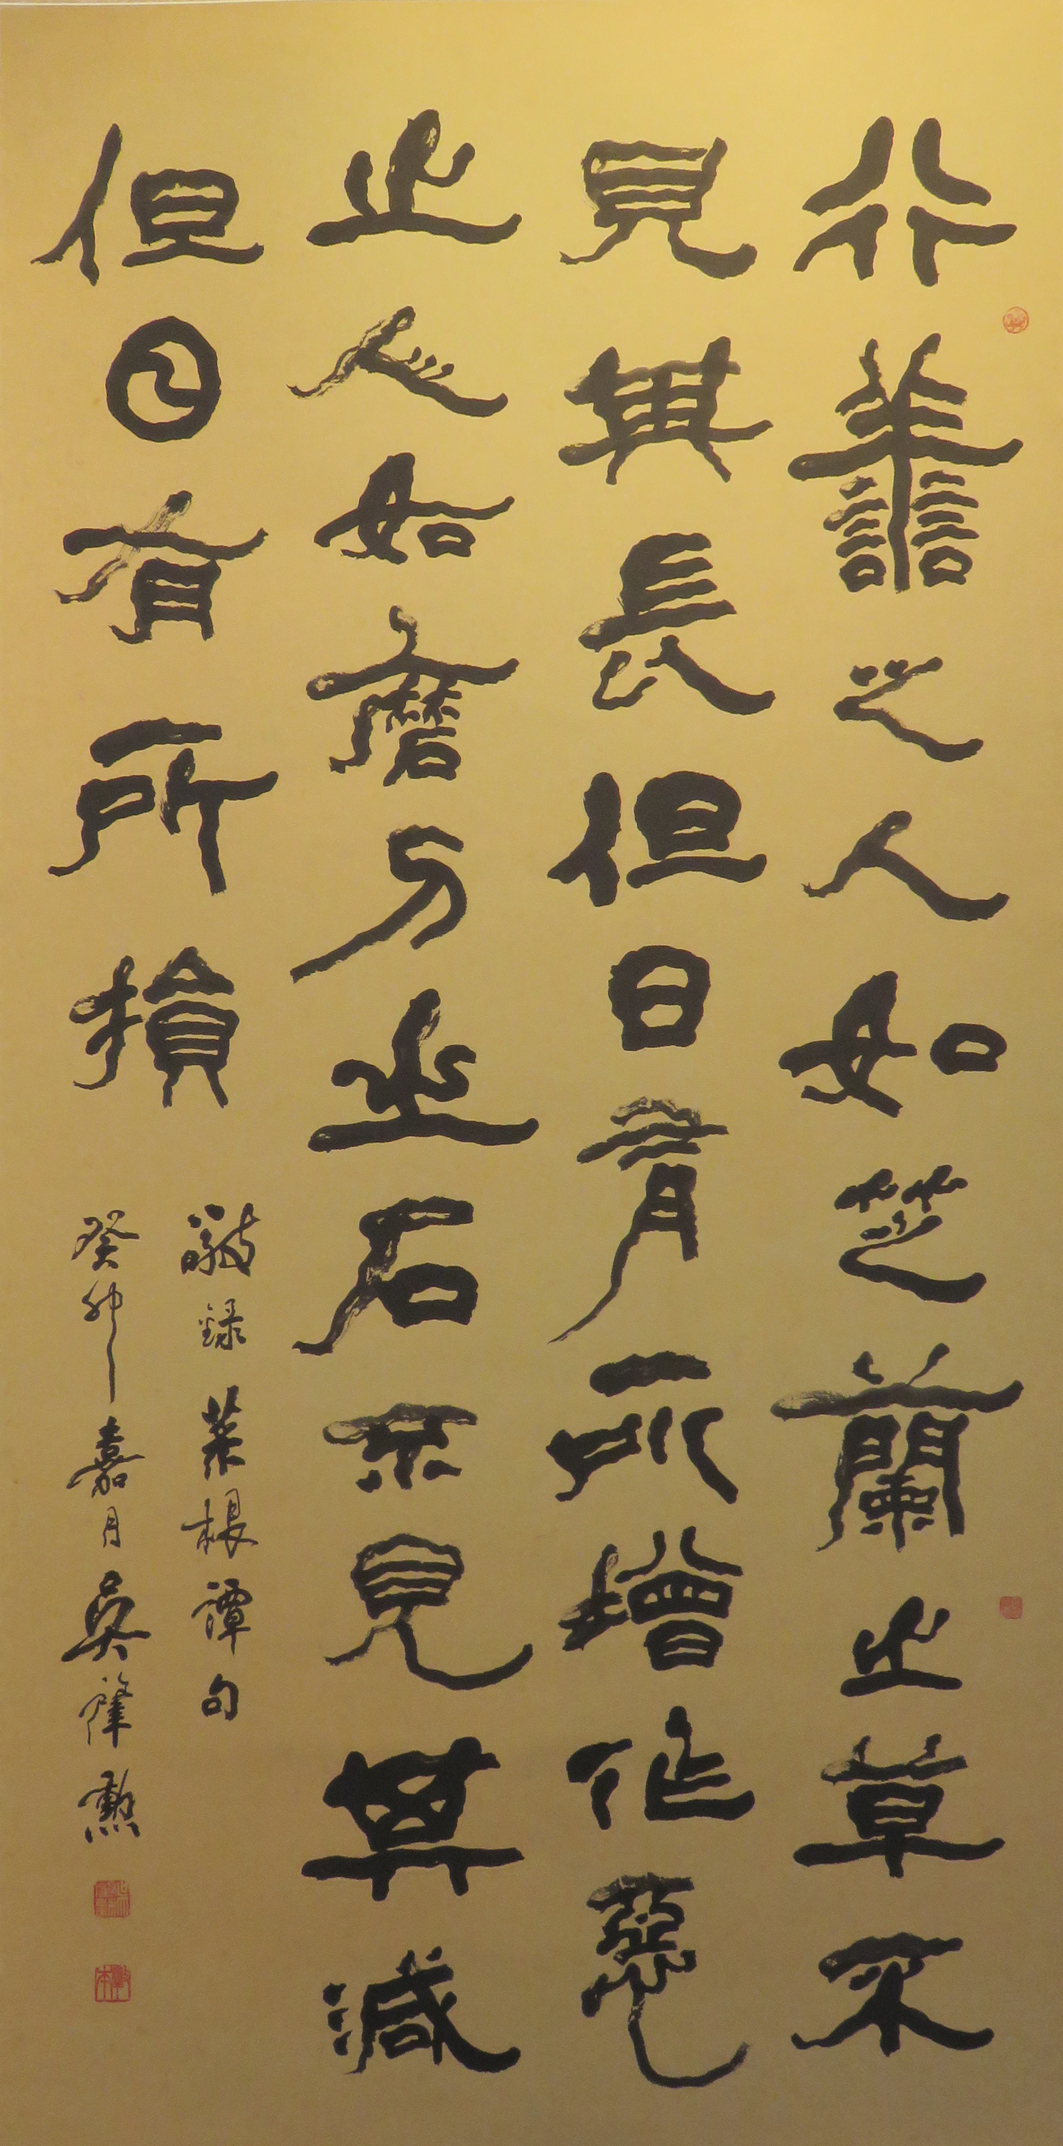 行善之人如芝蘭之草不
見其長但日有所增作惡
之人如磨刀之石不見其減
但日有所損
敬錄菜根譚句
癸卯嘉月吳肇勳